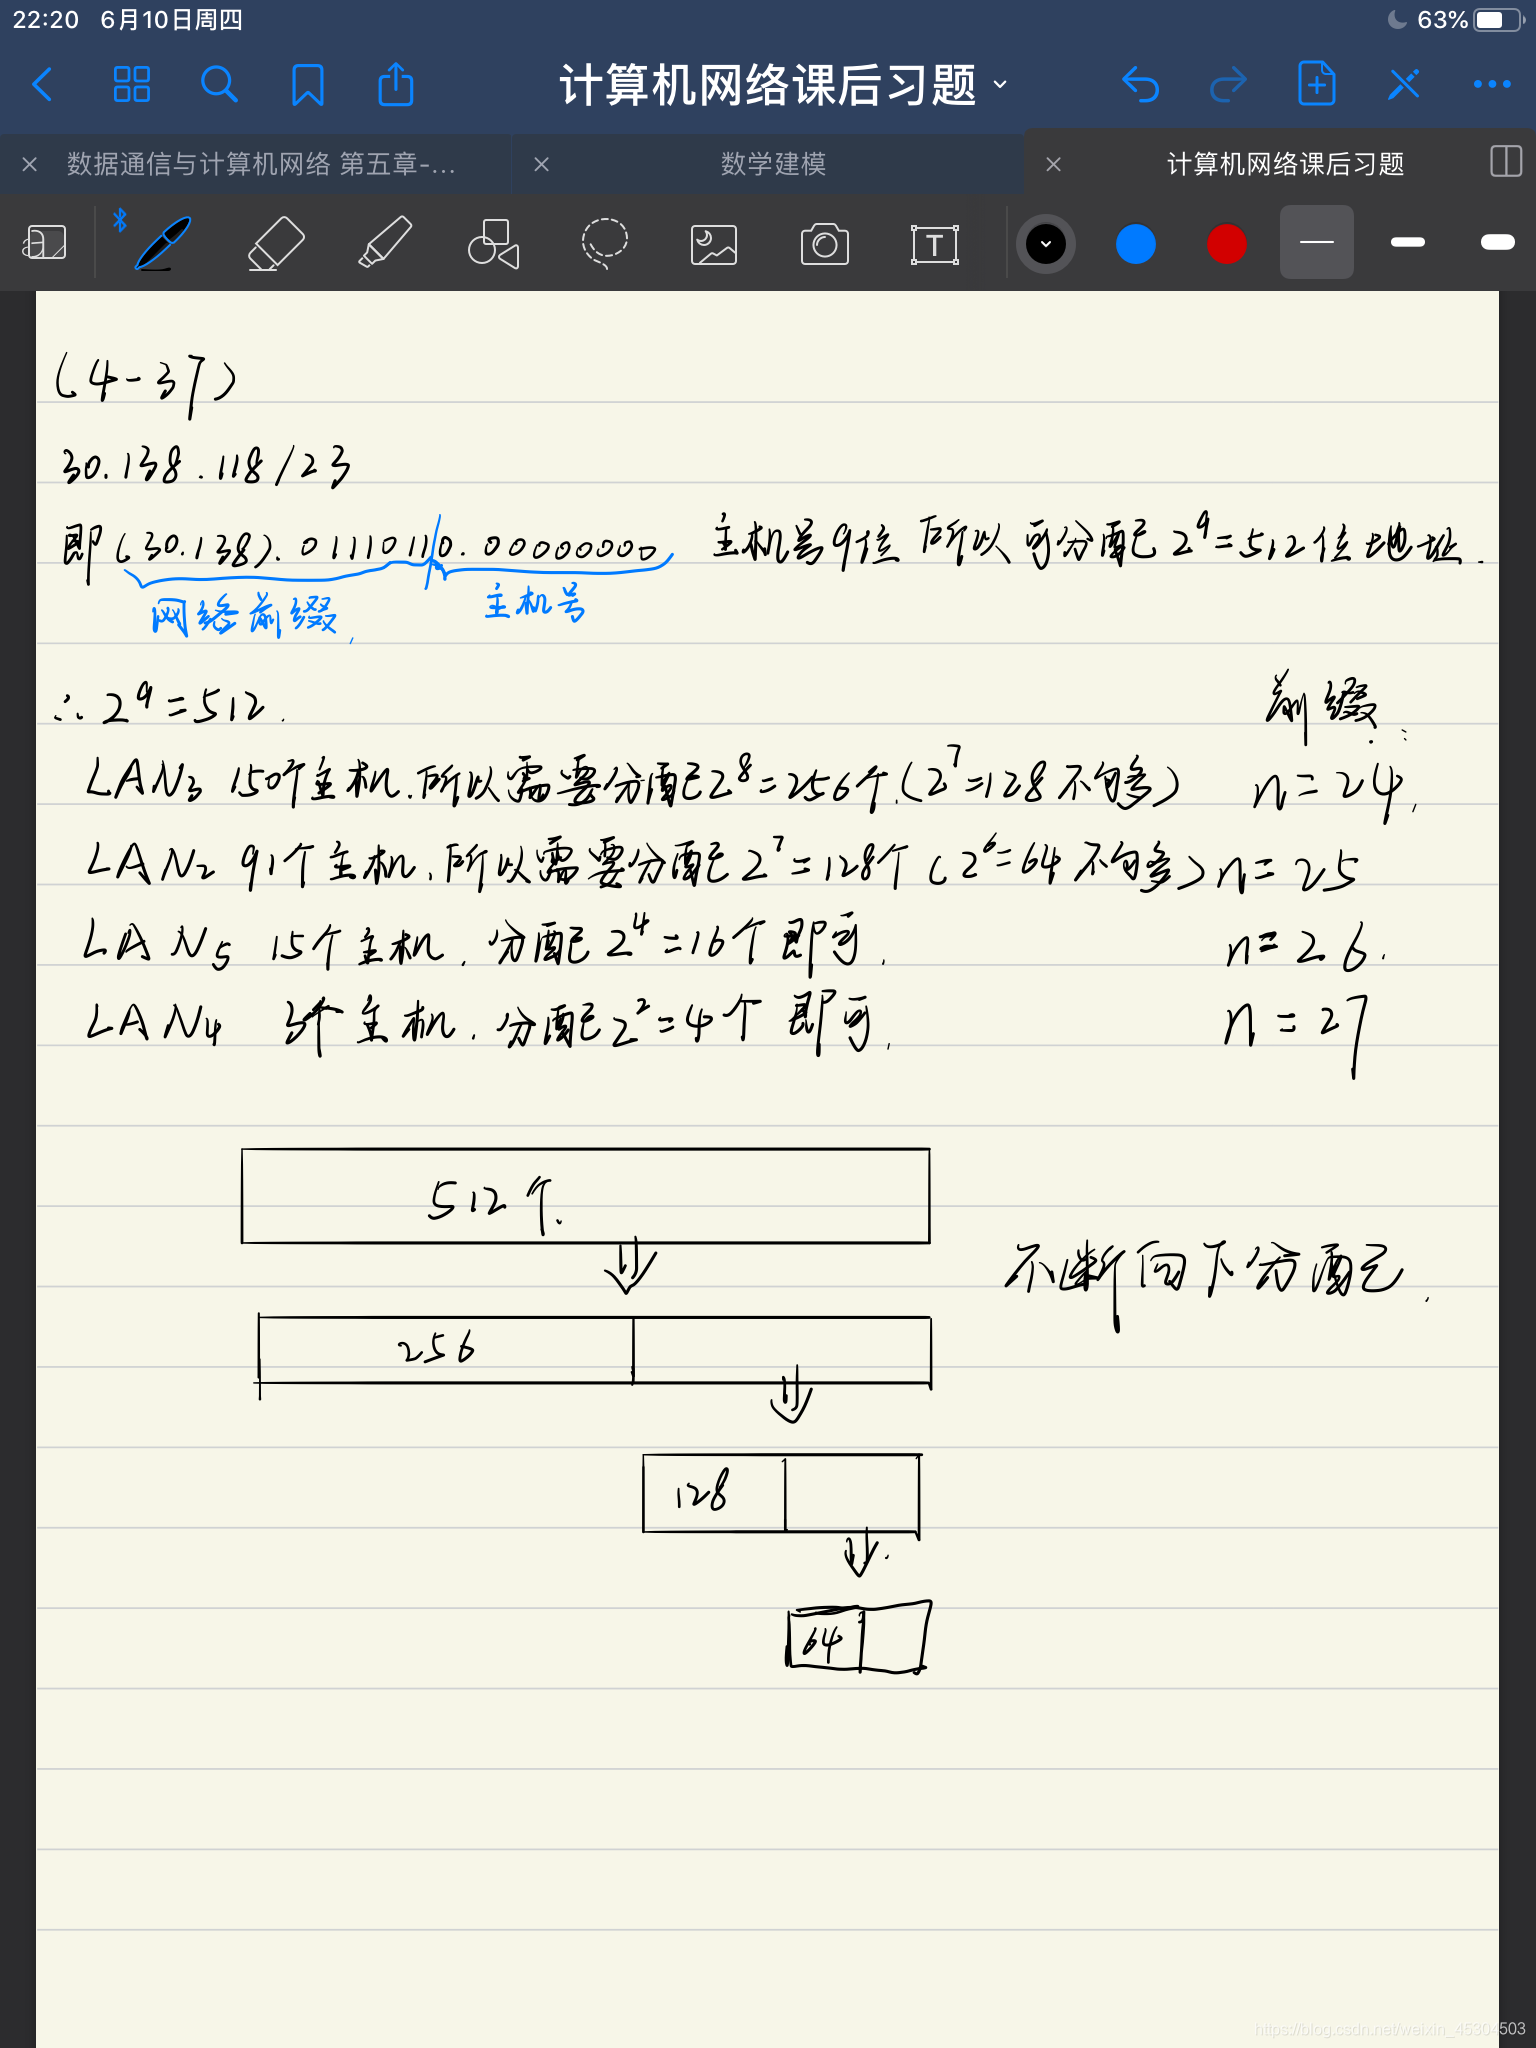 22:20 6月10日周四 63%
计算机网络课后习题
数据通信与计算机网络 第五章-... 数学建模 计算机网络课后习题
(4-37)
30.138.118/23
即(30.138).01110110.00000000 主机号9位 所以可分配2^9=512位地址.
网络前缀, 主机号
∴2^9=512. 前缀:
LAN3 150个主机,所以需要分配2^8=256个.(2^7=128不够多) n=24,
LAN2 91个主机,所以需要分配2^7=128个(2^6=64不够多) n=25
LAN5 15个主机,分配2^4=16个即可, n=26.
LAN4 3个主机,分配2^2=4个即可, n=27
512个.
不断向下分配.
256
128
64
https://blog.csdn.net/weixin_45304503